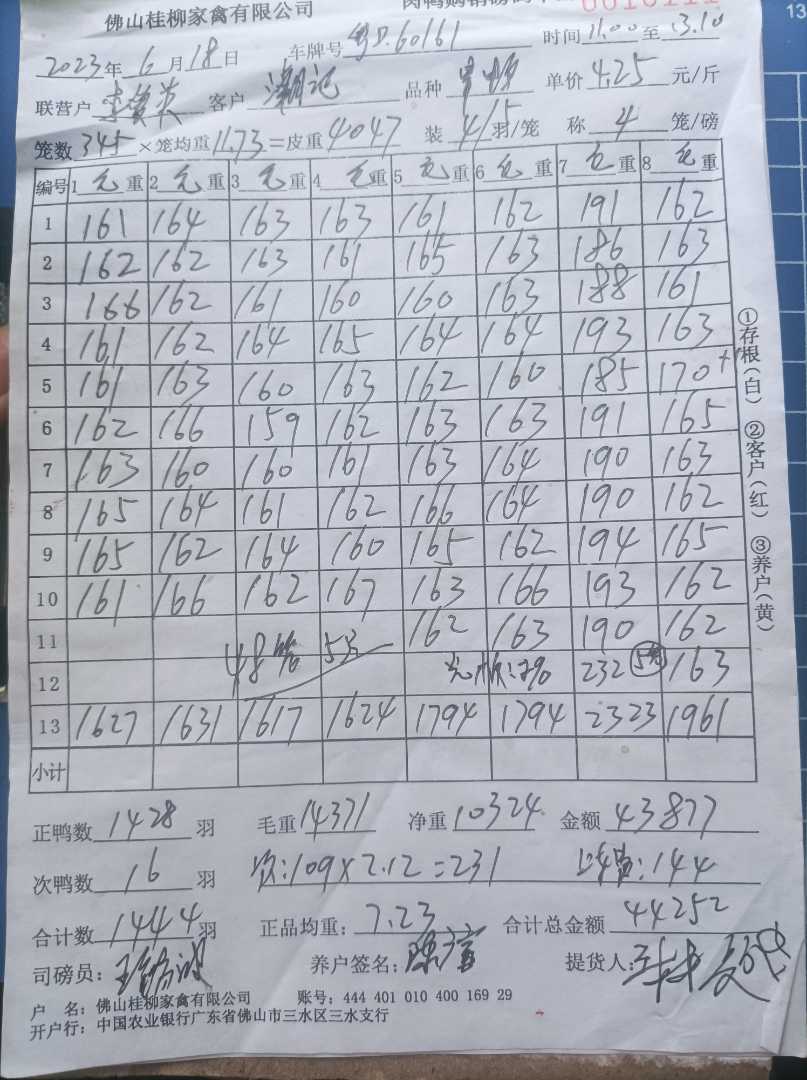 佛山桂柳家禽有限公司
2023年6月18日 车牌号 粤D.60161 时间 11.00 至 13.10
联营户 客户 潮记 品种 单价 4.25 元/斤
笼数 345 × 笼均重 11.73 = 皮重 4047 装 4/5 羽/笼 称 4 笼/磅
编号 1 毛 重 2 毛 重 3 毛 重 4 毛 重 5 毛 重 6 毛 重 7 毛 重 8 毛 重
1 161 164 163 163 161 162 191 162
2 162 162 163 161 165 163 186 163
3 166 162 161 160 160 163 188 161
4 161 162 164 165 164 164 193 163
5 161 163 160 163 162 160 185 170
6 162 166 159 162 163 163 191 165
7 163 160 160 161 163 164 190 163
8 165 164 161 162 166 164 190 162
9 165 162 164 160 165 162 194 165
10 161 166 162 167 163 166 193 162
11 162 163 190 162
12 232 163
13 1627 1631 1617 1624 1794 1794 2323 1961
小计
正鸭数 1428 羽 毛重 14371 净重 10324 金额 43877
次鸭数 16 羽 次:109×2.12=231 144
合计数 1444 羽 正品均重: 7.23 合计总金额 44252
司磅员: 养户签名: 提货人:
户 名: 佛山桂柳家禽有限公司 账号: 444 401 010 400 169 29
开户行: 中国农业银行广东省佛山市三水区三水支行
①存根(白) ②客户(红) ③养户(黄)